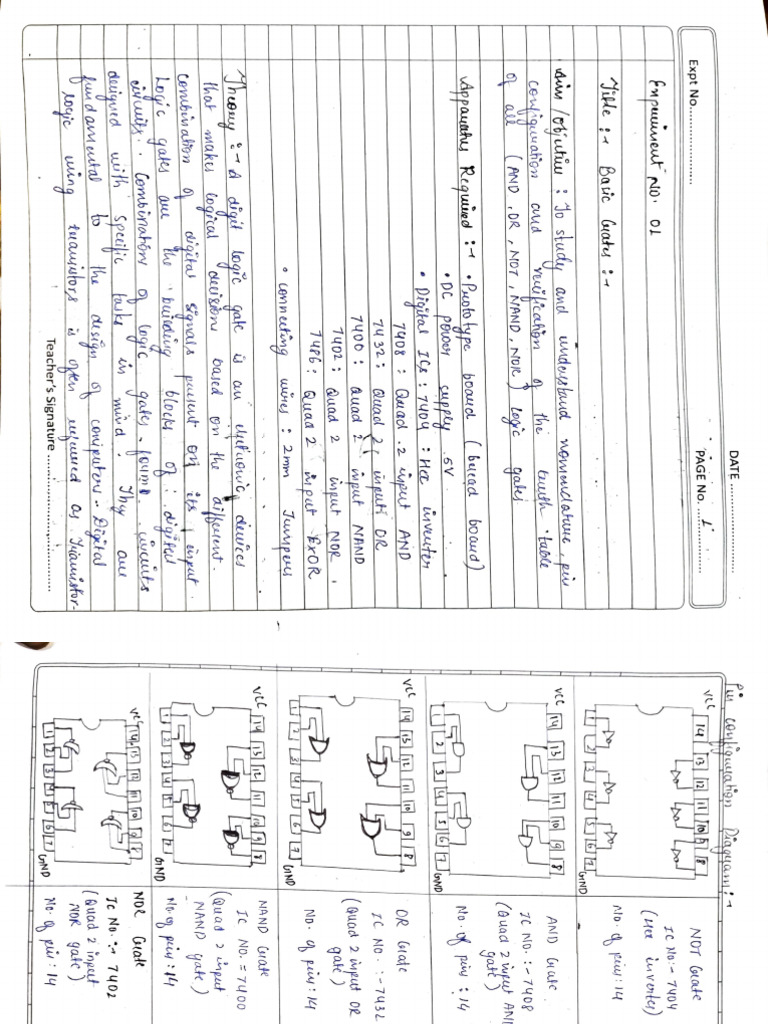 DATE
Expt No.
PAGE No. 1
Experiment NO. 01
Title :→ Basic Gates :→
Aim / Objective : To study and understand nomenclature, pin
configuration and verification of the truth table
of all (AND, OR, NOT, NAND, NOR) logic gates
Apparatus Required :→ • Prototype board (bread board)
• DC power supply 5V
• Digital ICs : 7404 : Hex inverter
7408 : Quad 2 input AND
7432 : Quad 2 input OR
7400 : Quad 2 input NAND
7402 : Quad 2 input NOR
7486 : Quad 2 input ExOR
• connecting wires : 2mm Jumpers
Theory :→ A digit logic gate is an electronic devices
that makes logical decisions based on the different
combination of digital signals present on its input.
Logic gates are the building blocks of digital
circuits. Combination of logic gates forms circuits
designed with specific tasks in mind. They are
fundamental to the design of computers. Digital
logic using transistors is often referred as Transistor-
Teacher's Signature
Pin configuration Diagram :→
VCC
14 13 12 11 10 9 8
1 2 3 4 5 6 7
GND
NOT Gate
IC No:- 7404
(Hex inverter)
No. of pin : 14
VCC
14 13 12 11 10 9 8
1 2 3 4 5 6 7
GND
AND Gate
IC NO. :- 7408
(Quad 2 input AND
gate)
No. of pin : 14
VCC
14 13 12 11 10 9 8
1 2 3 4 5 6 7
GND
OR Gate
IC NO. :- 7432
(Quad 2 input OR
gate)
NO. of pin : 14
VCC
14 13 12 11 10 9 8
1 2 3 4 5 6 7
GND
NAND Gate
IC NO. = 7400
(Quad 2 input
NAND gate)
No. of pin : 14
VCC
14 13 12 11 10 9 8
1 2 3 4 5 6 7
GND
NOR Gate
IC No. :- 7402
(Quad 2 input
NOR gate)
No. of pin : 14